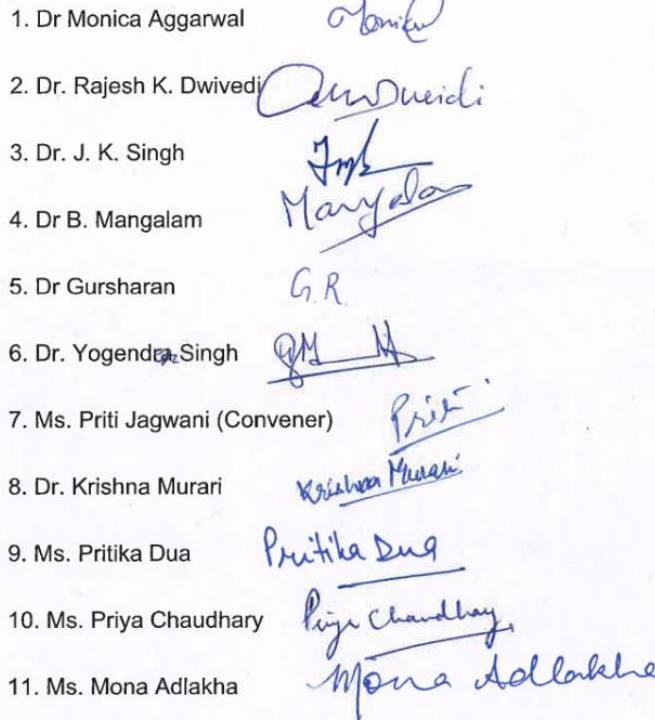 1. Dr Monica Aggarwal Monika
2. Dr. Rajesh K. Dwivedi Dwivedi
3. Dr. J. K. Singh
4. Dr B. Mangalam Mangalam
5. Dr Gursharan G.R.
6. Dr. Yogendra Singh
7. Ms. Priti Jagwani (Convener) Priti
8. Dr. Krishna Murari Krishna Murari
9. Ms. Pritika Dua Pritika Dua
10. Ms. Priya Chaudhary Priya Chaudhary
11. Ms. Mona Adlakha Mona Adlakha